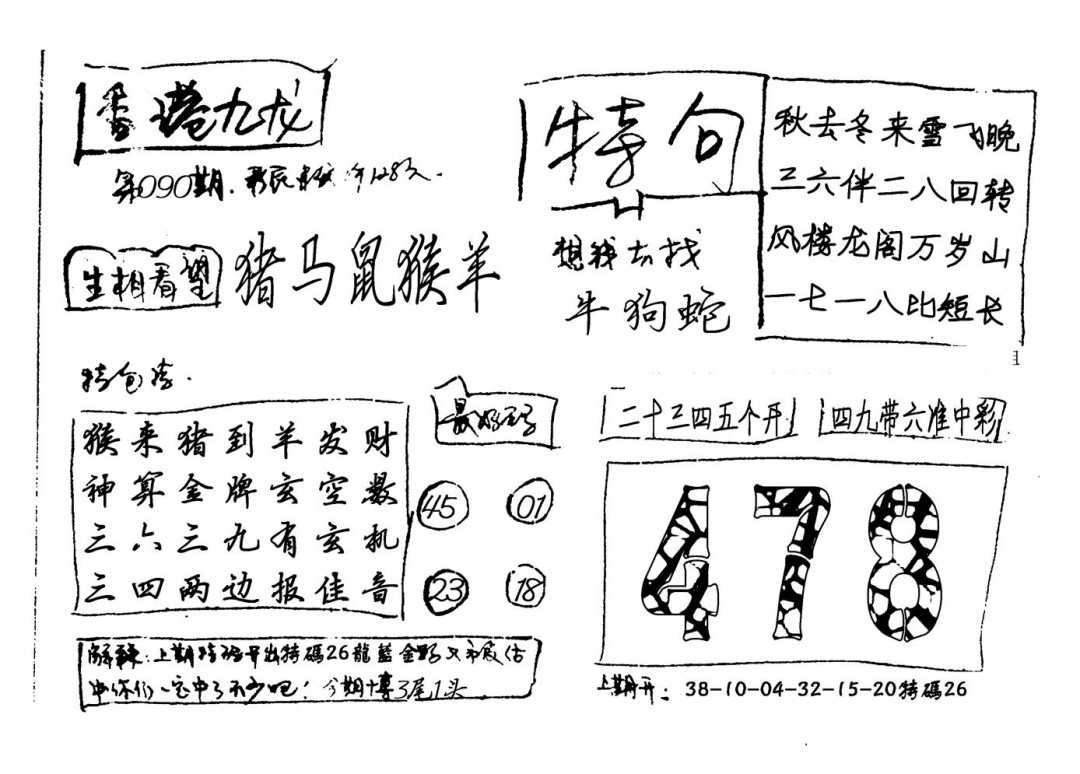 香港九龙
第090期.
生相看望
猪马鼠猴羊
特包榜.
猴来猪到羊发财
神算金牌玄空数
三六三九有玄机
三四两边报佳音
45 01
23 18
解释:上期特码开出特碼26龍藍金
中你们一定中了不少吧!今期博3尾1头
特句
想我去找
牛狗蛇
秋去冬来雪飞晚
三六伴二八回转
风楼龙阁万岁山
一七一八比短长
二十三四五个开
四九带六准中彩
478
上期开:38-10-04-32-15-20特碼26